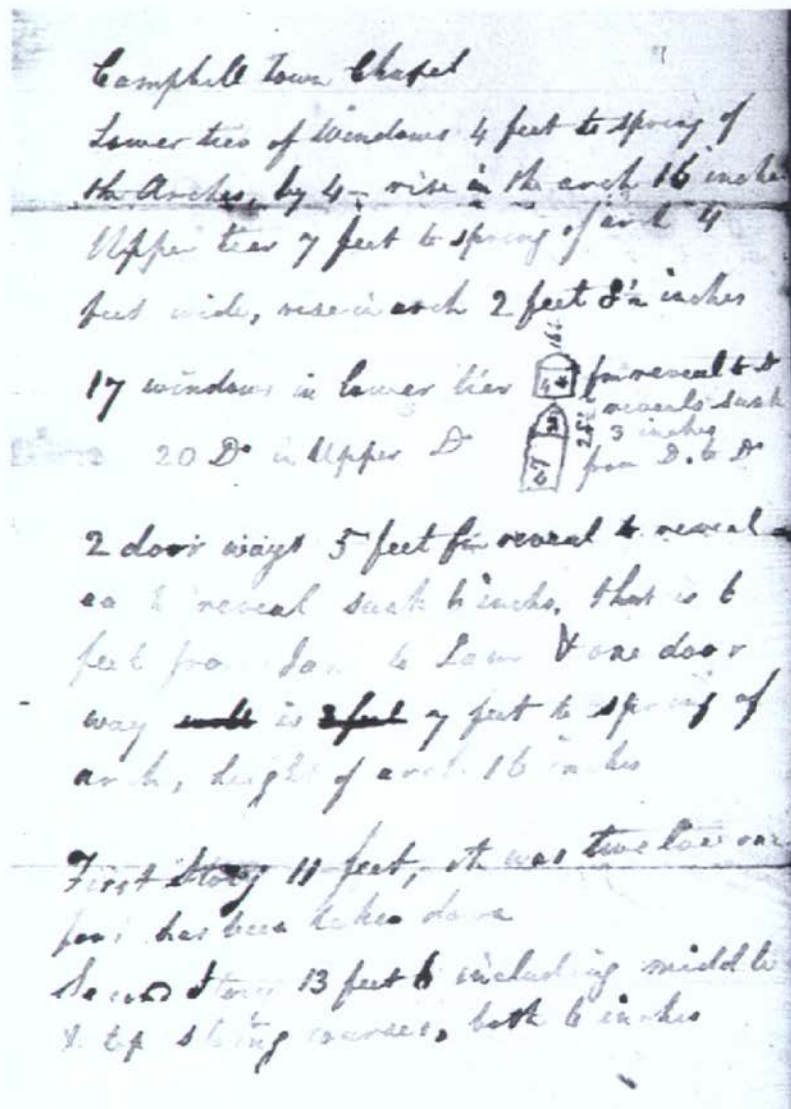 Campbell town Chapel
Lower tier of Windows 4 feet to spring of
the Arches, by 4 - rise in the arch 16 inches
Upper tier 7 feet to spring of arch 4
feet wide, rise in arch 2 feet
inches
17 windows in lower tier
20 Do in Upper Do
16
4 4
7
4
from reveal to Do
reveals sunk
3 inches
from D. to Do
2 door ways 5 feet from reveal to reveal
reveal sunk 6 inches, that is 6
feet from Jam to Jam & one door
way is 7 feet to spring of
arch, height of arch 16 inches
First Story 11 feet, it was twelve one
has been taken down
Second Story 13 feet 6 including middle
& top string courses, both 6 inches